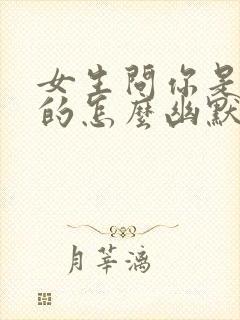 女生問你是
的怎麼幽默
月華漓